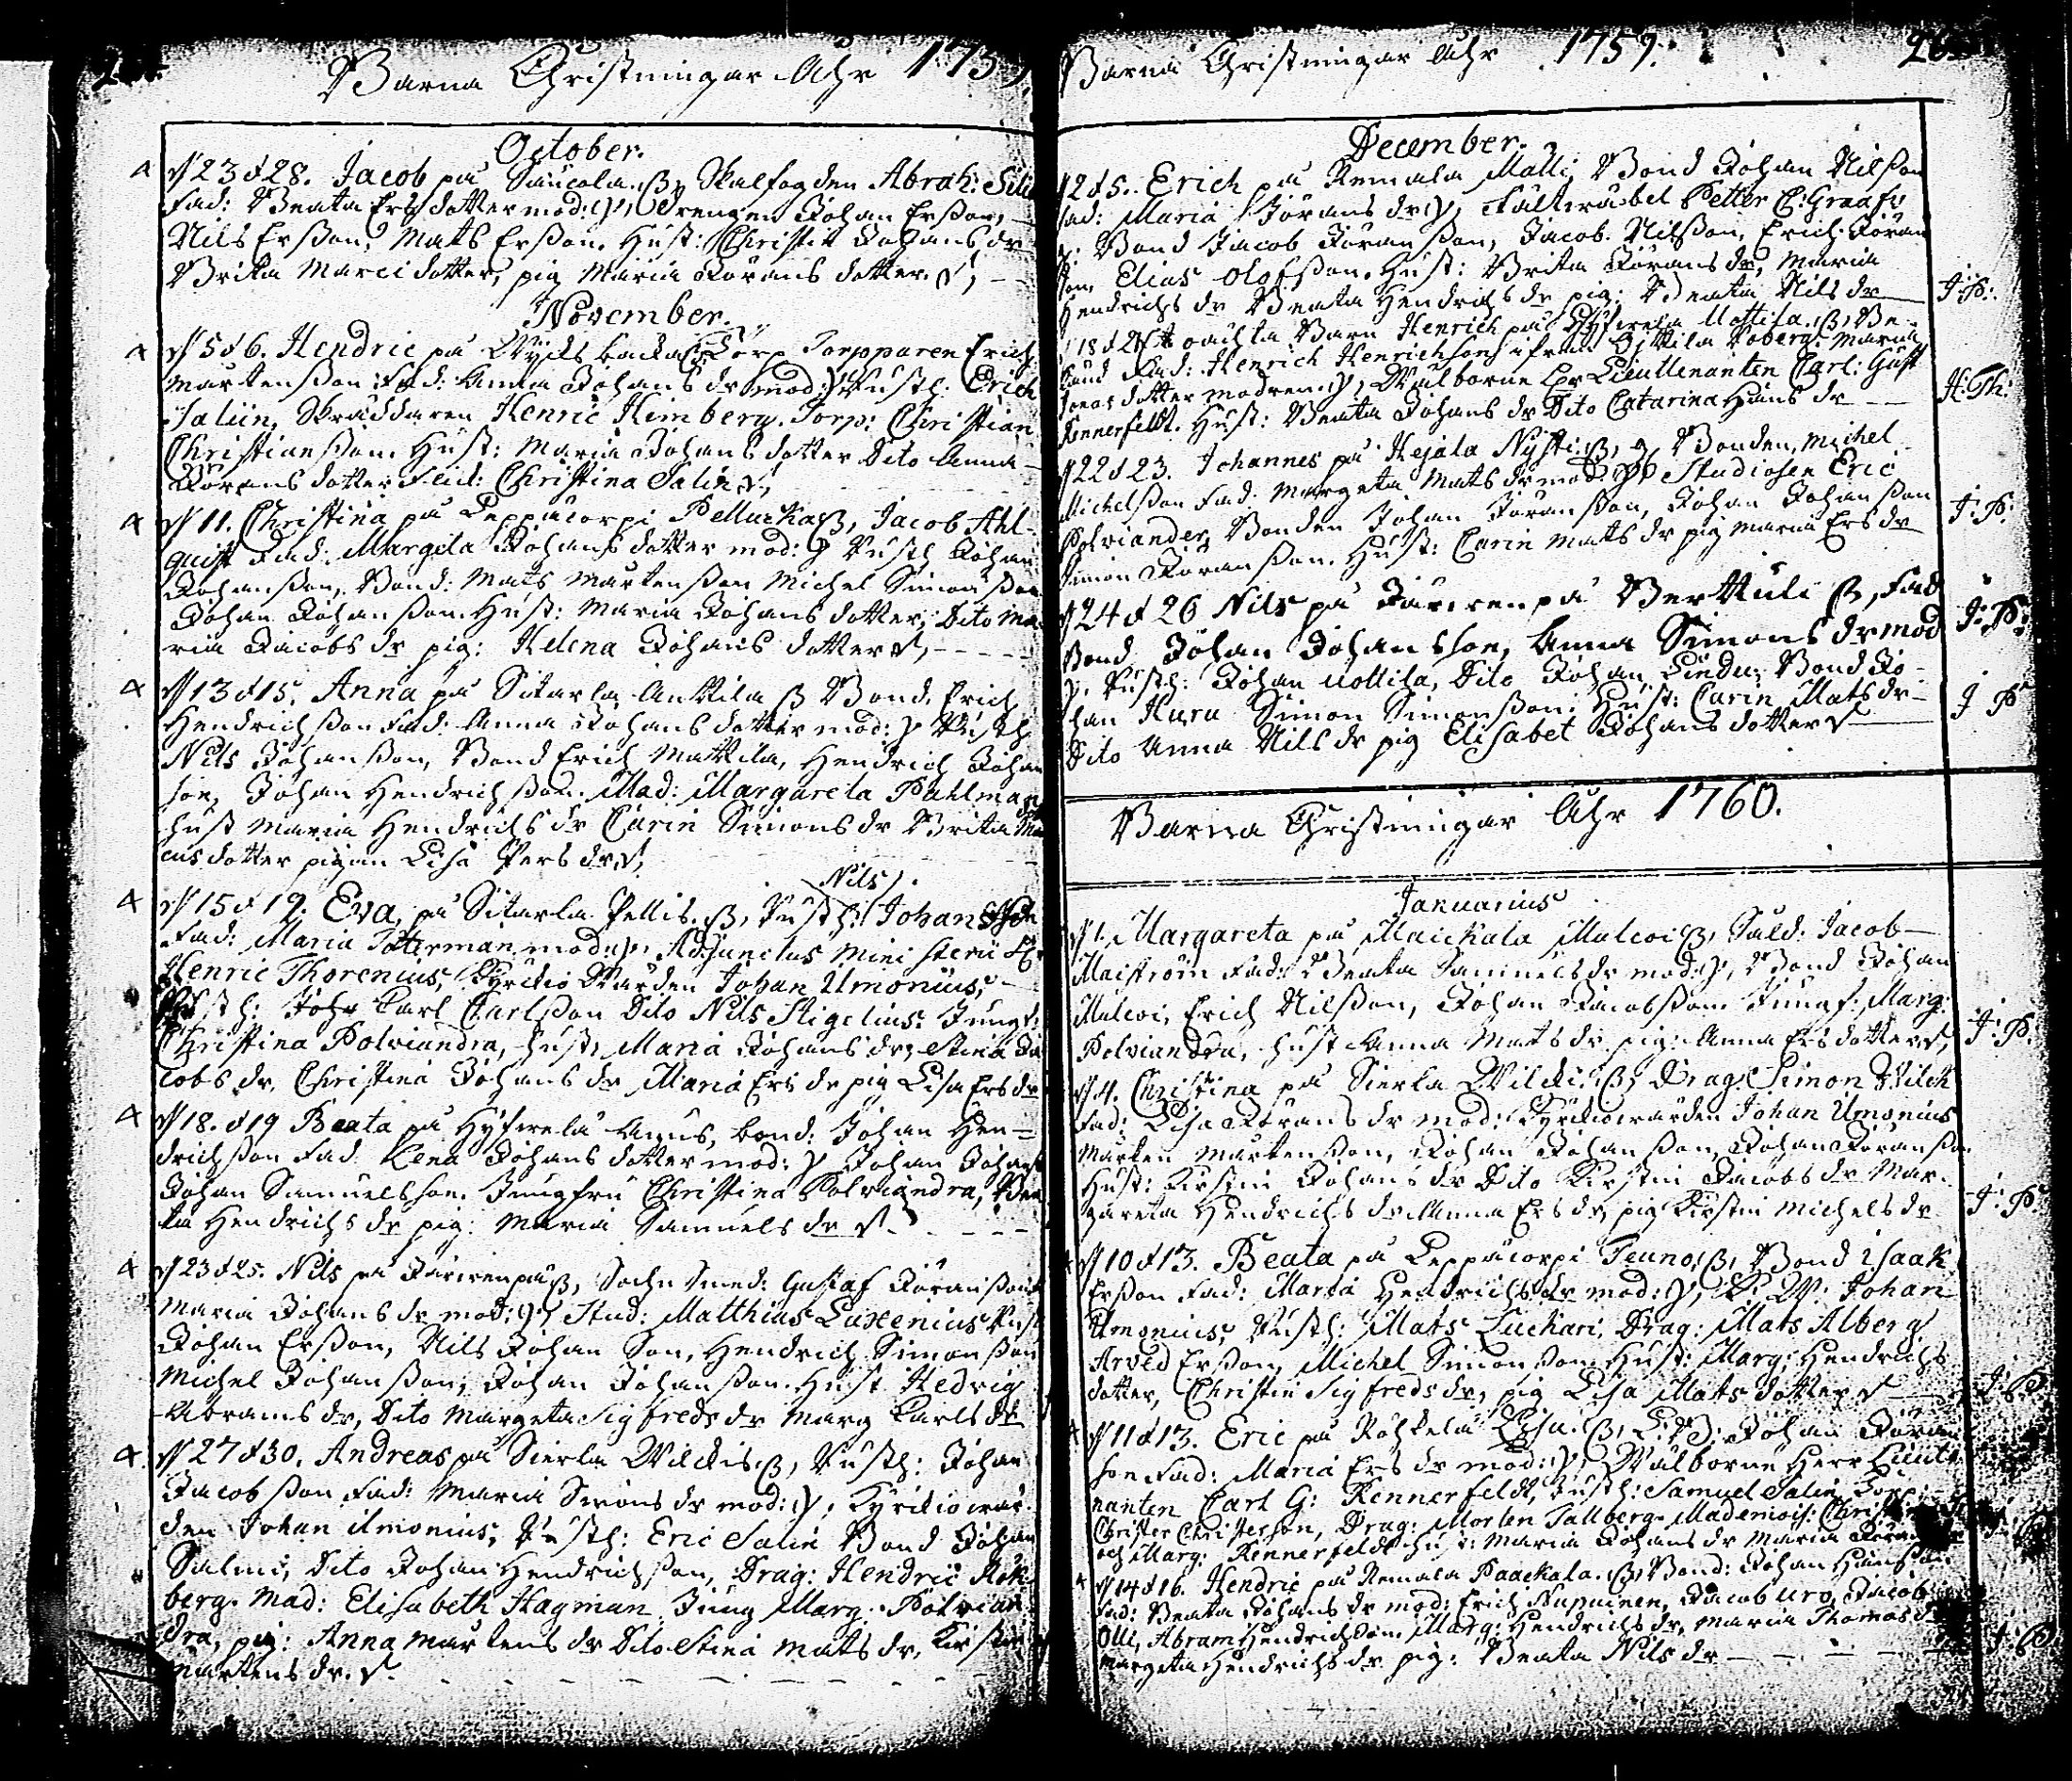 Barna Christningar Åhr 1759
October.
d 23 d 28. Jacob på Saucola. B, Skalfogden Abrah:
Fad: Beata Ersdotter mod: drengen Johan Ersson,
Nils Ersson, Mats Ersson. Hust: Christin Johans dr
Brita Marci dotter, pig Maria Jörans dotter.
November.
d 5 d 6. Hendric på Torp Torpparen Erich
Mårtensson Fad: Anna Johans dr mod: Rusth: Erich
Salin, Skräddaren Henric Heimberg. Torp: Christian
Christiansson. Hust: Maria Johans dotter Dito Anna
Jörans dotter Christina Salin
d 11. Christina på Leppäcorpi Pelluckas, Jacob Ahl-
quist Fad: Margeta Johans dotter mod: Rusth Johan
Johansson, Bond: Mats Mårtensson Michel Simonsson
Johan Johansson. Hust: Maria Johans dotter, Dito Ma-
ria Jacobs dr pig: Helena Johans dotter
d 13 d 15. Anna på Sitarla Anttila B Bond. Erich
Hendrichsson Fad: Anna Johans dotter mod: Rusth
Nils Johansson, Bond Erich Mattila, Hendrich Johan
son, Johan Hendrichsson. Mad: Margareta Pahlman
Hust Maria Hendrichs dr Carin Simons dr Brita
cus dotter pigan Lisa Pers dr
Nils
d 15 d 19. Eva, på Sitarla Pellis. B, Rusth: Johansson
Fad: Maria Päterman mod: Adjunctus Ministerii H:
Henric Thorenius, Kyrkio Wärden Johan Umonius,
Rusth: Carl Carlsson Dito Nils Stigelius. Jungf:
Christina Polviandra, Hust, Maria Johans dr, Stina Ja
cobs dr, Christina Johans dr Maria Ers dr pig Lisa Ers dr
d 18. d 19 Beata på Hyfvelä Anus, bond: Johan Hen-
drichsson Fad Lena Johans dotter mod: Johan Johans
Johan Samuelsson. Jungfru Christina Polviandra, Bea
ta Hendrichs dr pig: Maria Samuels dr
d 23 d 25. Nils på Järvenpää B, Sochn Smed: Gustaf Jöransson
Maria Johans dr mod: Stud: Matthias Laxenius Rusth
Johan Ersson, Nils Johan Son, Hendrich Simonsson
Michel Johansson, Johan Johansson. Hust Hedvig
Abrams dr, Dito Margeta Sigfreds dr Marg Carls dr
d 27 d 30. Andreas på Sierla Wilckis. B, Rusth: Johan
Jacobsson Fad: Maria Simons dr mod: Kyrkiowär-
den Johan Umonius, Rusth: Eric Salin Bond Johan
Salmi, Dito Johan Hendrichsson, Drag: Hendric Rök
berg. Mad: Elisabeth Hagman Jung Marg. Polvian
dra, pig: Anna Mårtens dr Dito Stina Mats dr, Kirstin
Mårtens dr.
Barna Christningar Åhr 1759.
December.
d 2 d 5. Erich på Remala Malli, Bond Johan Nilsson
Fad: Maria Jörans dr Fältwäbel Petter C: Graaf
Bond Jacob Jöransson, Jacob Nilsson, Erich Jöran
son, Elias Olofsson. Hust: Brita Jörans dr, Maria
Hendrichs dr Beata Hendrichs dr pig: Beata Nils dr J: P:
d 18 d 21 oächta Barn Henrich på Hyfvelä Mattila. B, Be-
Fad: Henrich Henrichson ifrån Maria
Jonas dotter modren, Wälborne Hr Lieutenanten Carl: Gust
Rennerfeldt. Hust: Beata Johans dr Dito Catarina Hans dr H: Th:
d 22 d 23. Johannes på Hejala Nysti B, Bonden, Michel
Michelsson Fad: Margeta Mats dr mod: Studiosen Eric
Polviander, Bonden Johan Jöransson, Johan Johansson
Simon Jöransson. Hust: Carin Mats dr pig Maria Ers dr J: P:
d 24 d 26 Nils på Järvenpää Berttuli B, Fad
Bond Johan Johansson, Anna Simons dr mod J: P:
Rusth: Johan Uottila, Dito Johan Lindu, Bond Jo-
han Kuru Simon Simonsson: Hust: Carin Mats dr
Dito Anna Nils dr pig Elisabet Johans dotter J P
Barna Christningar Åhr 1760.
Januarius
d 1. Margareta på Maickala Mulcoi B, Sald: Jacob
Maiström Fad: Beata Samuels dr mod: Bond Johan
Mulcoi, Erich Nilsson, Johan Jacobsson Jungf: Marg:
Polviandra, Hust Anna Mats dr pig: Anna Ers dotter J: P:
d 4. Christina på Sierla Wilcki. B, Drag: Simon Wilck
Fad: Lisa Jörans dr mod: Kyrkiowärden Johan Umonius
Mårten Mårtensson, Johan Johansson, Johan Jöransson
Hust: Kirstin Johans dr Dito Kirstin Jacobs dr Mar-
gareta Hendrichs dr Anna Ers dr, pig Kirstin Michels dr J: P:
d 10 d 13. Beata på Leppäcorpi Teuno, B, Bond Isaak
Ersson Fad: Maria Hendrichs dr mod: K: W: Johan
Umonius, Rusth: Mats Luckari, Drag: Mats Alberg
Arved Ersson, Michel Simonsson Hust: Marg: Hendrichs
dotter, Christin Sigfreds dr, pig Lisa Mats dotter J: P:
d 11 d 13. Eric på Röhkelä B, Johan Jöran
son Fad: Maria Ers dr mod: Wälborne Herr Lieute
nanten Carl G: Rennerfeldt, Rusth: Samuel Salin, Torp:
Christer Christerson, Drag: Morten Tallberg. Mademois: Christ
och Marg: Rennerfeldt Hust: Maria Johans dr Maria Jöran
d 14 d 16. Hendric på Remala Paackala. B, Bond: Johan Hansson
Fad: Beata Johans dr mod: Erich Nupuinen, Jacob Uro, Jacob
Olli, Abram Hendrichsson Marg: Hendrichs dr, Maria Thomas
Margeta Hendrichs dr pig: Beata Nils dr J: P: